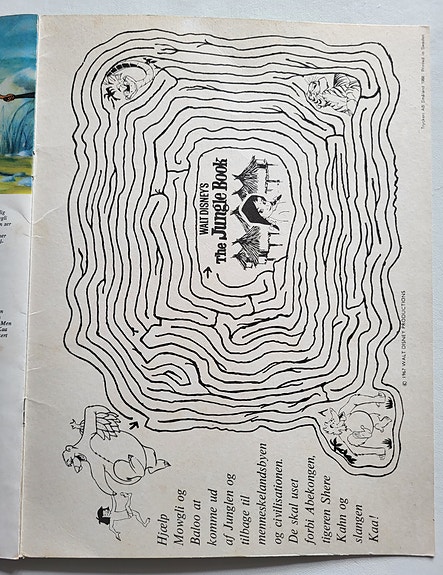 Hjælp
Mowgli og
Baloo at
komme ud
af Junglen og
tilbage til
menneskelandsbyen
og civilisationen.
De skal uset
forbi Abekongen,
tigeren Shere
Kahn og
slangen
Kaa!
WALT DISNEY'S
The Jungle Book
© 1967 WALT DISNEY PRODUCTIONS
Tryckeri AB Småland 1968. Printed in Sweden